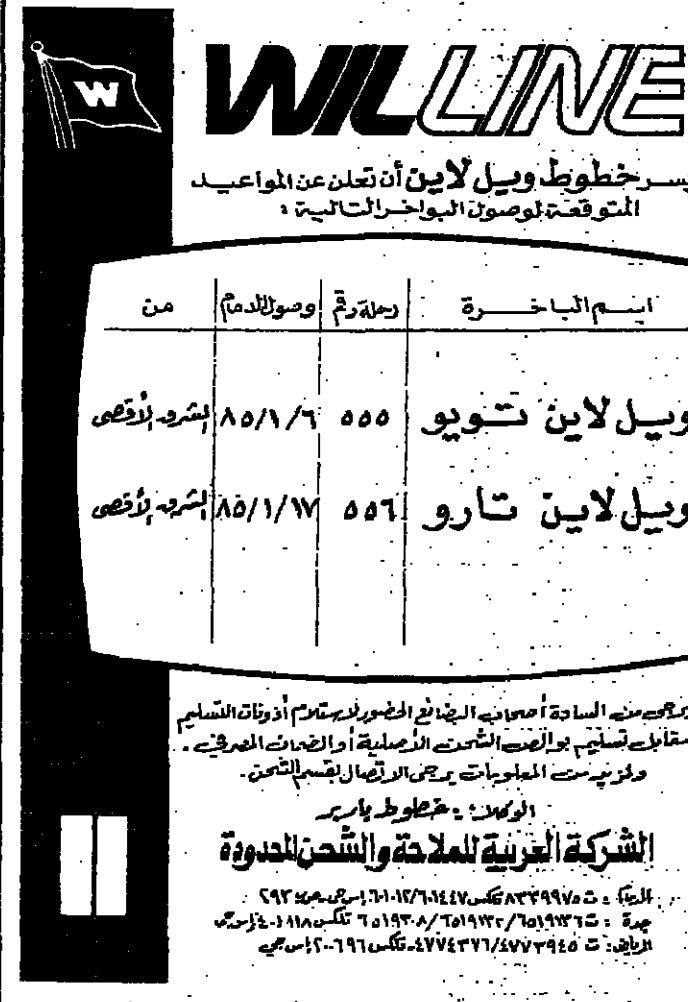 W
WILLINE
يسر خطوط ويل لاين أن تعلن عن المواعيد
المتوقعة لوصول البواخر التالية :
اسم الباخرة رحلة رقم وصول الدمام من
ويل لاين تويو ٥٥٥ ٨٥/١/٦ الشرق الأقصى
ويل لاين تارو ٥٥٦ ٨٥/١/١٧ الشرق الأقصى
يرجى من السادة أصحاب البضائع الحضور لاستلام أذونات التسليم
مقابل تسليم بوالص الشحن الأصلية أو الضمان المصرفي .
ولمزيد من المعلومات يرجى الاتصال بقسم الشحن .
الوكلاء : خطوط باربر
الشركة العربية للملاحة والشحن المحدودة
ت ٨٣٣٩٩٧٥ تلكس اس جي ص ب ٢٩٣
جدة : ت ٦٥١٩١٣٦/٦٥١٩١٢٢/٦٥١٩٣٠٨ تلكس اس جي
الرياض : ت ٤٧٧٣٩٤٥/٤٧٧٤٣٧٦ تلكس ٢٠٠٦٩٦ اس جي